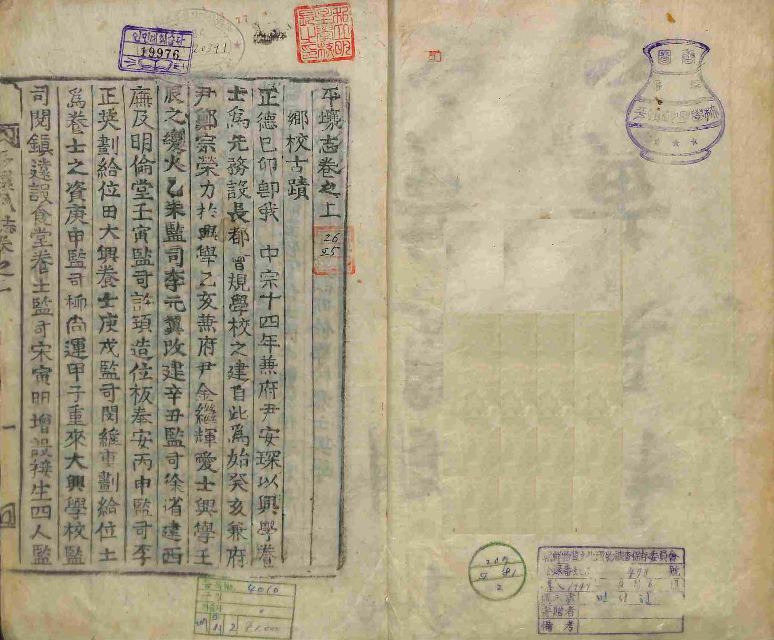 平壤志卷之上
鄕校古蹟
正德己卯卽我 中宗十四年兼府尹安琛以興學養
士爲先務設長都會規學校之建自此爲始癸亥兼府
尹鄭宗榮力於興學乙亥兼府尹金繼輝愛士興學壬
辰之變火乙未監司李元翼改建辛丑監司徐渻建西
廡及明倫堂壬寅監司許頊造位板奉安丙申監司李
正英劃給位田大興養士庚戌監司閔維重劃給位土
爲養士之資庚申監司柳尙運甲子重來大興學校監
司閔鎭遠設食堂養士監司宋寅明增設接生四人監
19976
20391
26
25
4010
207
491
2
備考